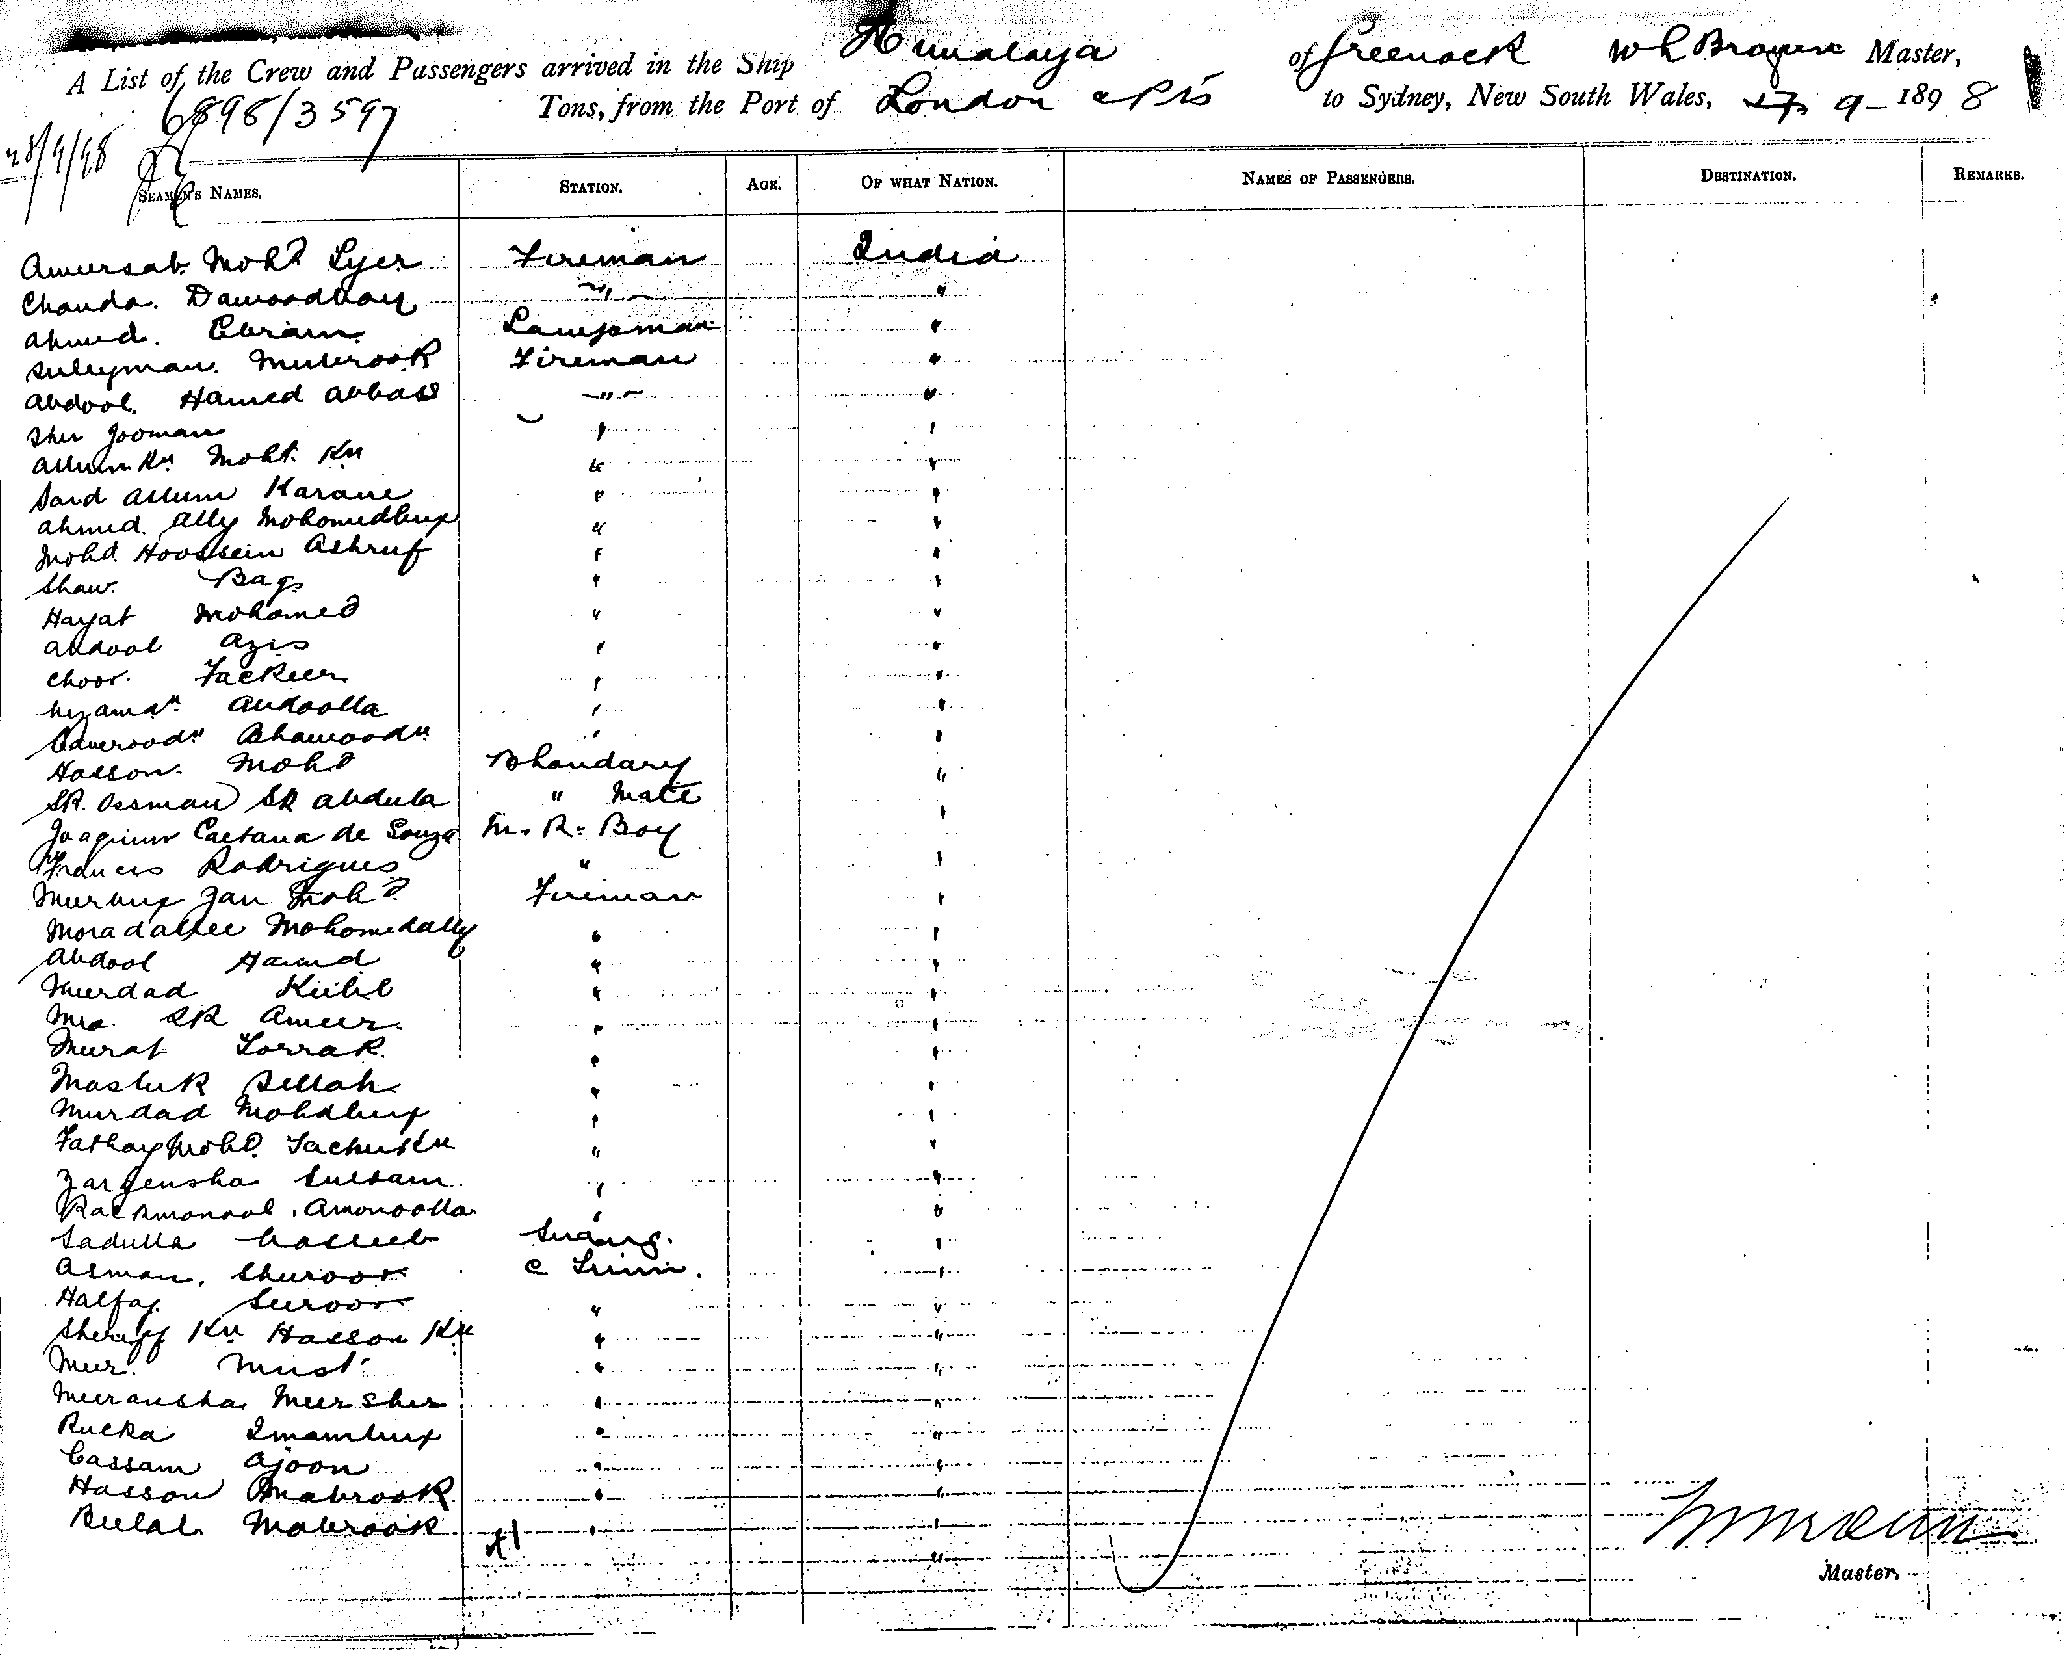 A List of the Crew and Passengers arrived in the Ship Himalaya of Greenock W L Broun Master,
6898/3597 Tons, from the Port of London & Pts to Sydney, New South Wales, 27 9 - 1898
28/9/98
SEAMEN'S NAMES. STATION. AGE. OF WHAT NATION. NAMES OF PASSENGERS. DESTINATION. REMARKS.
Ameersab Mohd Syer Fireman India
Chanda. Dawoodboy " "
Ahmed. Ebrim Lampsman "
Suleyman. Mubrook Fireman "
Abdool. Hamed Abbas " "
Sher Jooman " "
Allum Kn Mohd. Kn " "
Said Allum Karane " "
Ahmed. Ally Mohomedbux " "
Mohd. Hoossein Ashruf " "
Shaw. Bag " "
Hayat Mohomed " "
Abdool Azis " "
Choor. Fackeer " "
Nizamdn. Abdoolla " "
Bhawoodn " "
Hasson. Mohd Bhandary "
SK. Ossman SK Abdula " Mate "
Joaquim Caetana de Souza M. R. Boy "
Francis Rodrigues " "
Meerbux Jan Mohd Fireman "
Moradallee Mohomedally " "
Abdool Hamid " "
Meerdad " "
SK Ameer. " "
Murat " "
Mastuk " "
Murdad Mohdbux " "
Fathay Mohd. " "
Zargensha Sultam " "
Amonoolla " "
Sadulla Serang. "
Asman. Shuroor C Trim. "
Halfay. Suroor " "
Sheriff Kn Hasson Kn " "
Meer. Must " "
Meeransha Meersher " "
Rucka Imambux " "
Cassam Ajoon " "
Hasson Mabrook " "
Belal. Mabrook " "
41 "
Master.